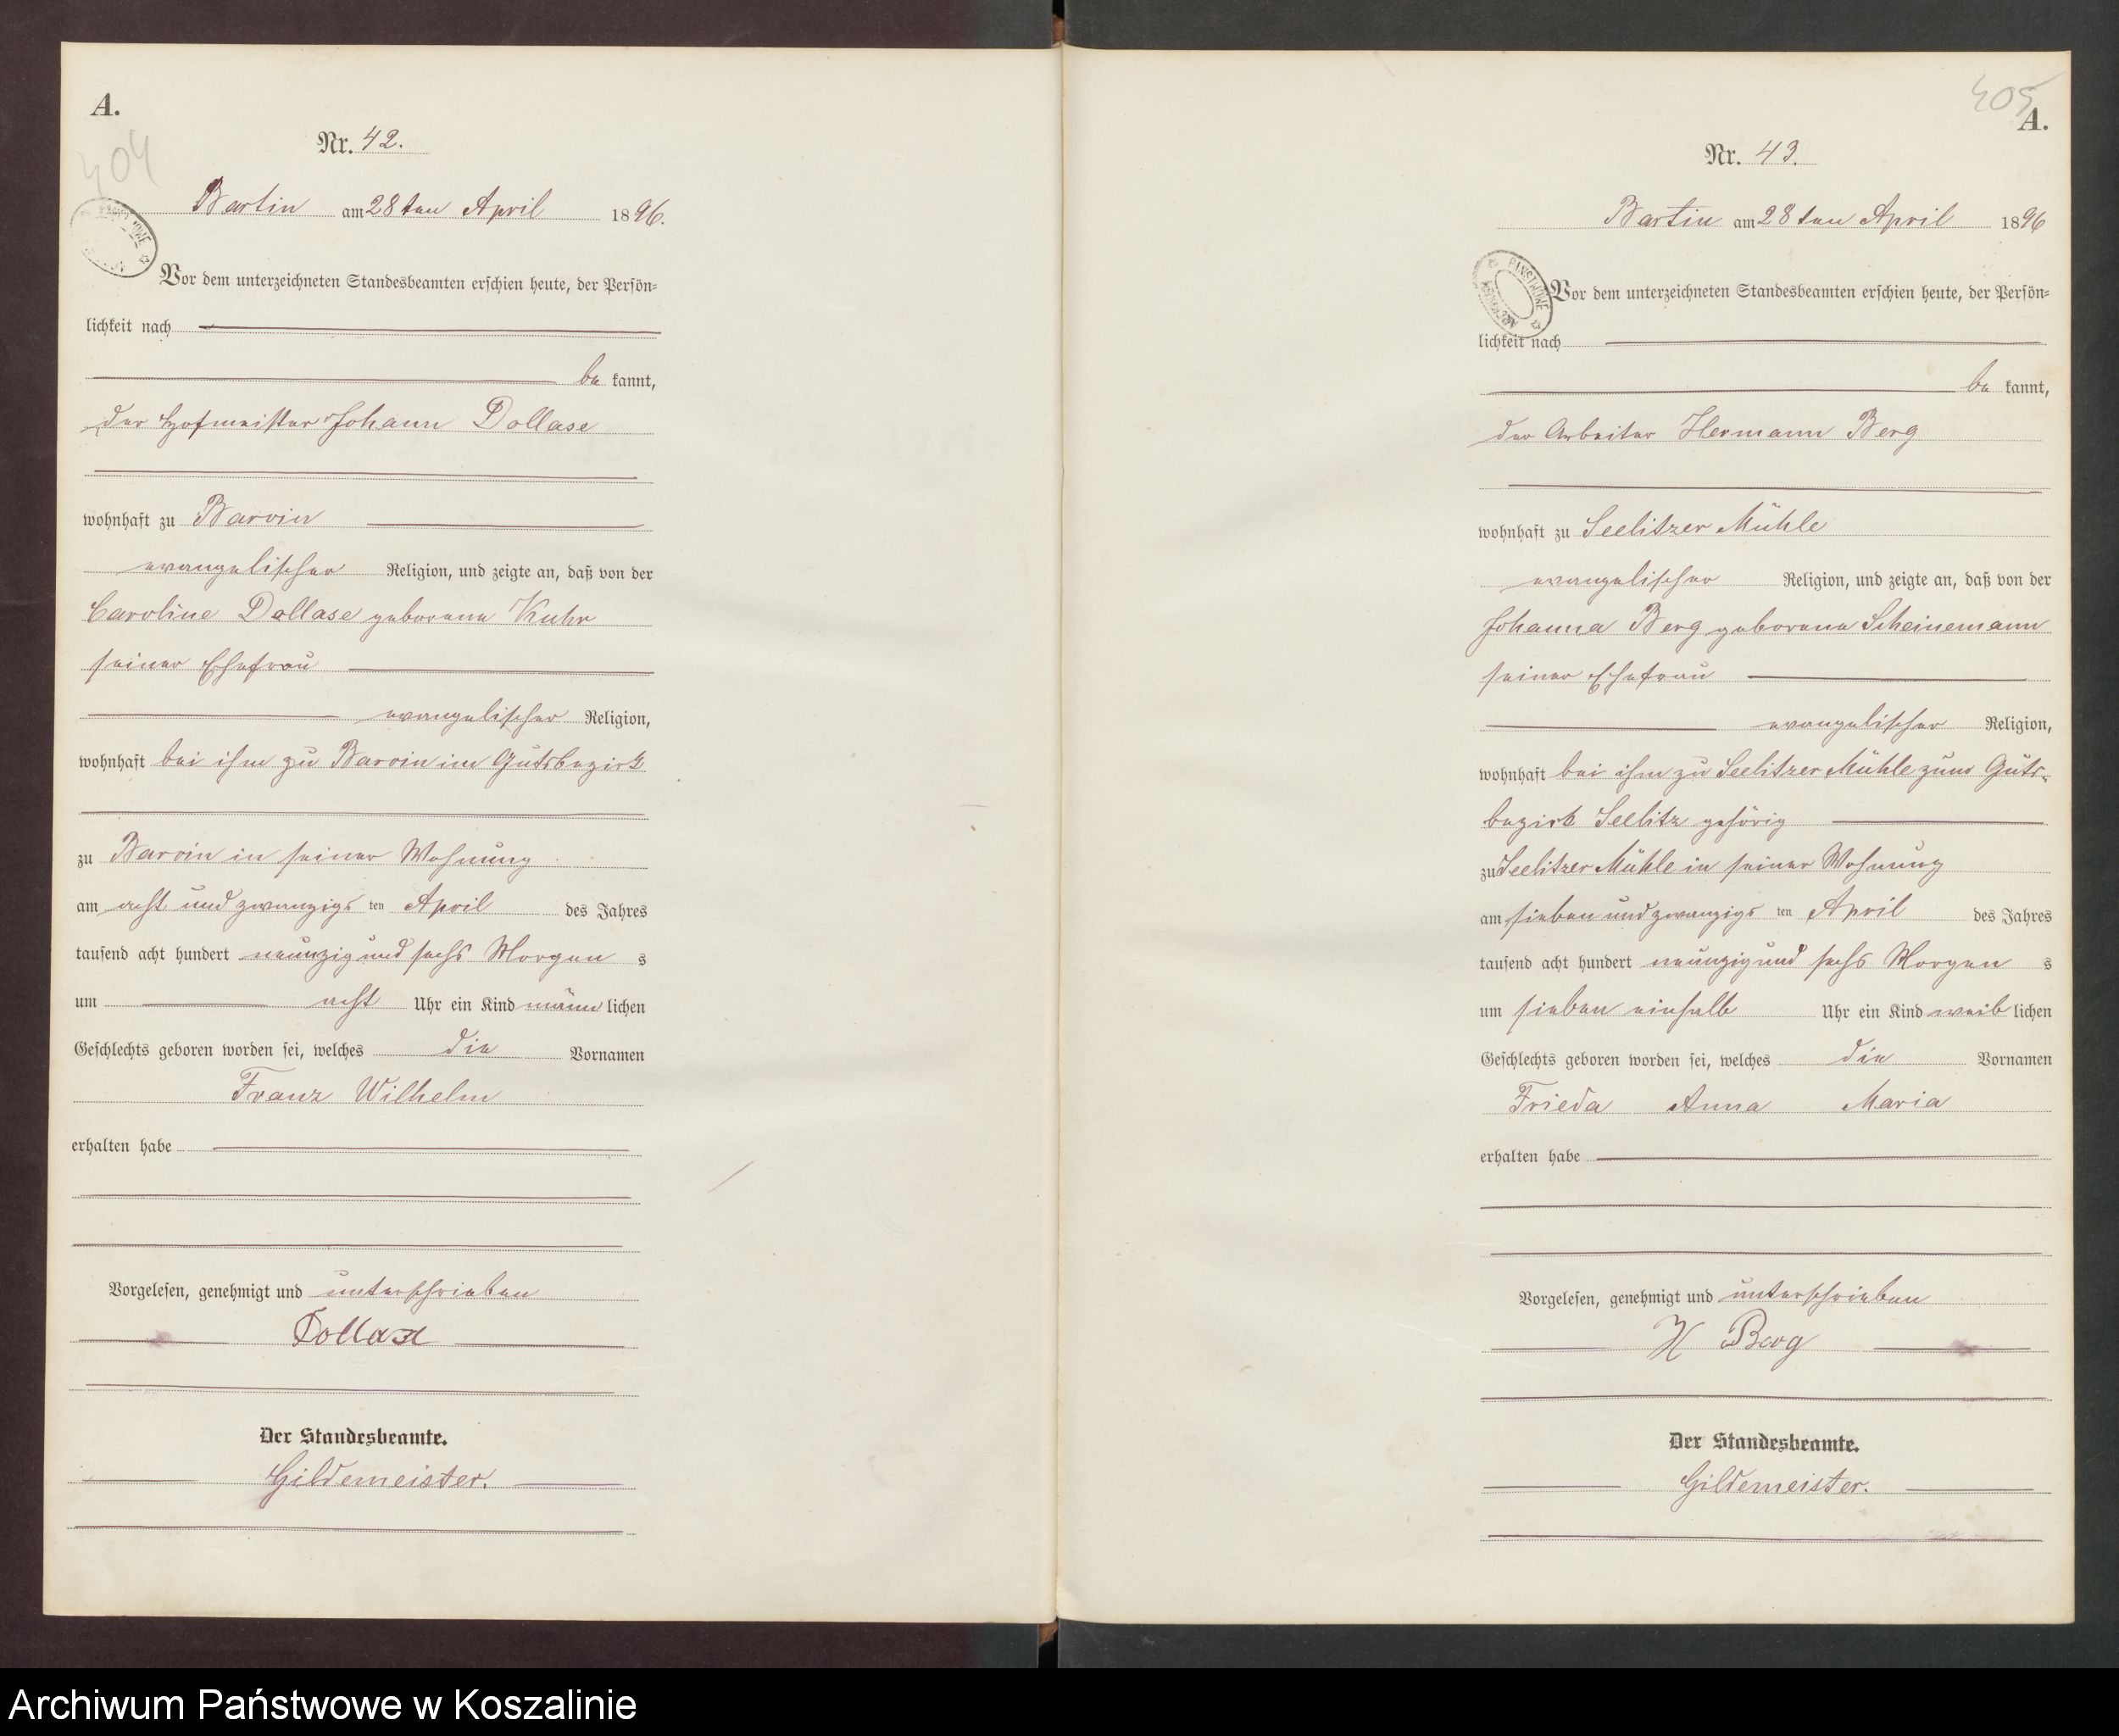 A.
404
Nr. 42.
Bartin am 28ten April 1896.
Vor dem unterzeichneten Standesbeamten erschien heute, der Persön=
lichkeit nach
be kannt,
der Hofmeister Johann Dollase
wohnhaft zu Barvin
evangelischer Religion, und zeigte an, daß von der
Caroline Dollase geborene Kuhr
seiner Ehefrau
evangelischer Religion,
wohnhaft bei ihm zu Barvin im Gutsbezirk
zu Barvin in seiner Wohnung
am acht und zwanzigs ten April des Jahres
tausend acht hundert neunzig und sechs Morgen s
um acht Uhr ein Kind männ lichen
Geschlechts geboren worden sei, welches die Vornamen
Franz Wilhelm
erhalten habe
Vorgelesen, genehmigt und unterschrieben
Dollase
Der Standesbeamte.
Gildemeister.
405
A.
Nr. 43.
Bartin am 28ten April 1896
ARCHIWUM PAŃSTWOWE
Vor dem unterzeichneten Standesbeamten erschien heute, der Persön=
lichkeit nach
be kannt,
der Arbeiter Hermann Berg
wohnhaft zu Seelitzer Mühle
evangelischer Religion, und zeigte an, daß von der
Johanna Berg geborene Scheinemann
seiner Ehefrau
evangelischer Religion,
wohnhaft bei ihm zu Seelitzer Mühle zum Guts-
bezirk Seelitz gehörig
zu Seelitzer Mühle in seiner Wohnung
am sieben und zwanzigs ten April des Jahres
tausend acht hundert neunzig und sechs Morgen s
um sieben einhalb Uhr ein Kind weib lichen
Geschlechts geboren worden sei, welches die Vornamen
Frieda Anna Maria
erhalten habe
Vorgelesen, genehmigt und unterschrieben
H Berg
Der Standesbeamte.
Gildemeister.
Archiwum Państwowe w Koszalinie